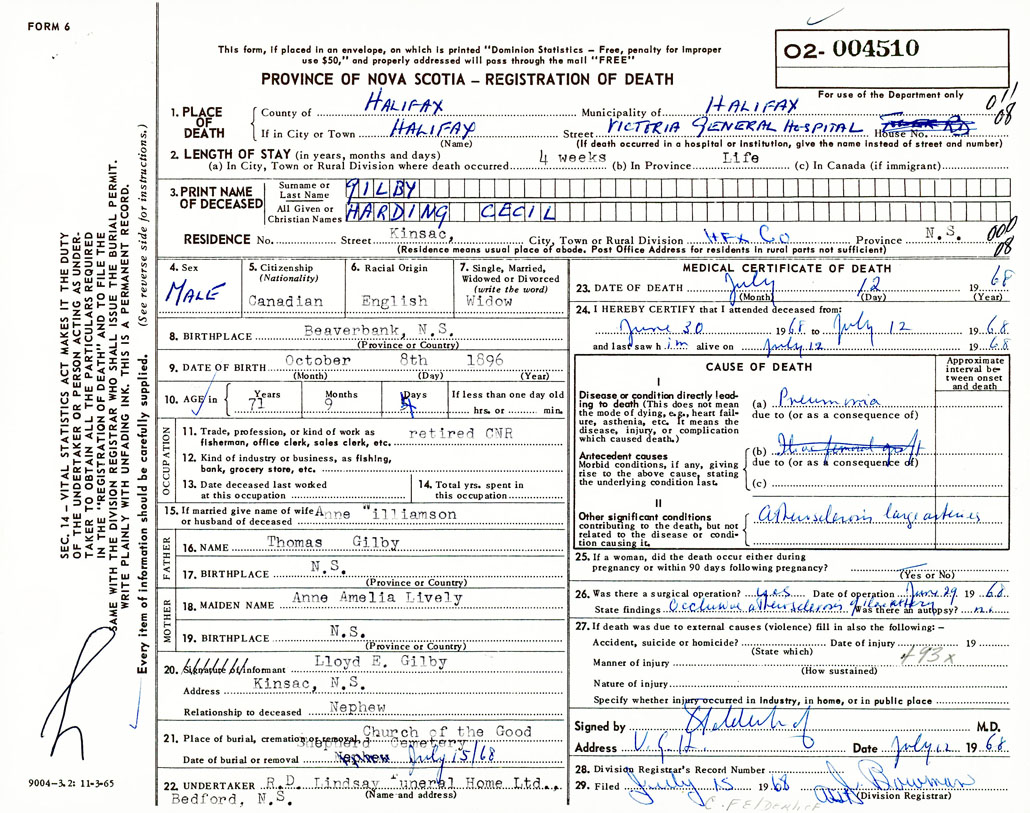 FORM 6
O2- 004510
This form, if placed in an envelope, on which is printed "Dominion Statistics – Free, penalty for improper
use $50," and properly addressed will pass through the mail "FREE"
PROVINCE OF NOVA SCOTIA – REGISTRATION OF DEATH
For use of the Department only
011
08
1. PLACE OF DEATH County of HALIFAX Municipality of HALIFAX
If in City or Town HALIFAX Street VICTORIA GENERAL HOSPITAL House No.
(Name) (If death occurred in a hospital or institution, give the name instead of street and number)
2. LENGTH OF STAY (in years, months and days)
(a) In City, Town or Rural Division where death occurred 4 weeks (b) In Province Life (c) In Canada (if immigrant)
3. PRINT NAME OF DECEASED
Surname or Last Name GILBY
All Given or Christian Names HARDING CECIL
RESIDENCE No. Street Kinsac, City, Town or Rural Division HFX Co Province N.S. 000
(Residence means usual place of abode. Post Office Address for residents in rural parts not sufficient) 08
4. Sex MALE
5. Citizenship (Nationality) Canadian
6. Racial Origin English
7. Single, Married, Widowed or Divorced (write the word) Widow
8. BIRTHPLACE Beaverbank, N.S.
(Province or Country)
9. DATE OF BIRTH October 8th 1896
(Month) (Day) (Year)
10. AGE in Years 71 Months 9 Days 4 If less than one day old
hrs. or min.
OCCUPATION
11. Trade, profession, or kind of work as
fisherman, office clerk, sales clerk, etc. retired CNR
12. Kind of industry or business, as fishing,
bank, grocery store, etc.
13. Date deceased last worked
at this occupation
14. Total yrs. spent in
this occupation
15. If married give name of wife Anne "illiamson
or husband of deceased
FATHER
16. NAME Thomas Gilby
17. BIRTHPLACE N.S.
(Province or Country)
MOTHER
18. MAIDEN NAME Anne Amelia Lively
19. BIRTHPLACE N.S.
(Province or Country)
20. Signature of informant Lloyd E. Gilby
Address Kinsac, N.S.
Relationship to deceased Nephew
21. Place of burial, cremation or removal Church of the Good
Shepherd Cemetery
Date of burial or removal Nephew July 15/68
22. UNDERTAKER R.D. Lindsay "uneral Home Ltd.,
Bedford, N.S. (Name and address)
MEDICAL CERTIFICATE OF DEATH
23. DATE OF DEATH July 12 1968
(Month) (Day) (Year)
24. I HEREBY CERTIFY that I attended deceased from:
June 30 1968 to July 12 1968
and last saw him alive on July 12 1968
CAUSE OF DEATH
Approximate interval between onset and death
I
Disease or condition directly leading to death (This does not mean the mode of dying, e.g., heart failure, asthenia, etc. It means the disease, injury, or complication which caused death.)
(a) Pneumonia
due to (or as a consequence of)
Antecedent causes
Morbid conditions, if any, giving rise to the above cause, stating the underlying condition last.
(b) Iliac femoral graft
due to (or as a consequence of)
(c)
II
Other significant conditions contributing to the death, but not related to the disease or condition causing it.
Atherosclerosis large arteries
25. If a woman, did the death occur either during
pregnancy or within 90 days following pregnancy?
(Yes or No)
26. Was there a surgical operation? yes Date of operation June 29 1968
State findings Occlusive atherosclerosis of iliac artery Was there an autopsy? no
27. If death was due to external causes (violence) fill in also the following: –
Accident, suicide or homicide? Date of injury 19
(State which)
Manner of injury 493x
(How sustained)
Nature of injury
Specify whether injury occurred in industry, in home, or in public place
Signed by M.D.
Address V.G.H. Date July 12 1968
28. Division Registrar's Record Number
29. Filed July 15 1968 Bowman
(Division Registrar)
SEC. 14 – VITAL STATISTICS ACT MAKES IT THE DUTY
OF THE UNDERTAKER OR PERSON ACTING AS UNDER-
TAKER TO OBTAIN ALL THE PARTICULARS REQUIRED
IN THE "REGISTRATION OF DEATH" AND TO FILE THE
SAME WITH THE DIVISION REGISTRAR WHO SHALL ISSUE THE BURIAL PERMIT.
WRITE PLAINLY WITH UNFADING INK. THIS IS A PERMANENT RECORD.
Every item of information should be carefully supplied. (See reverse side for instructions.)
9004-3.2: 11-3-65